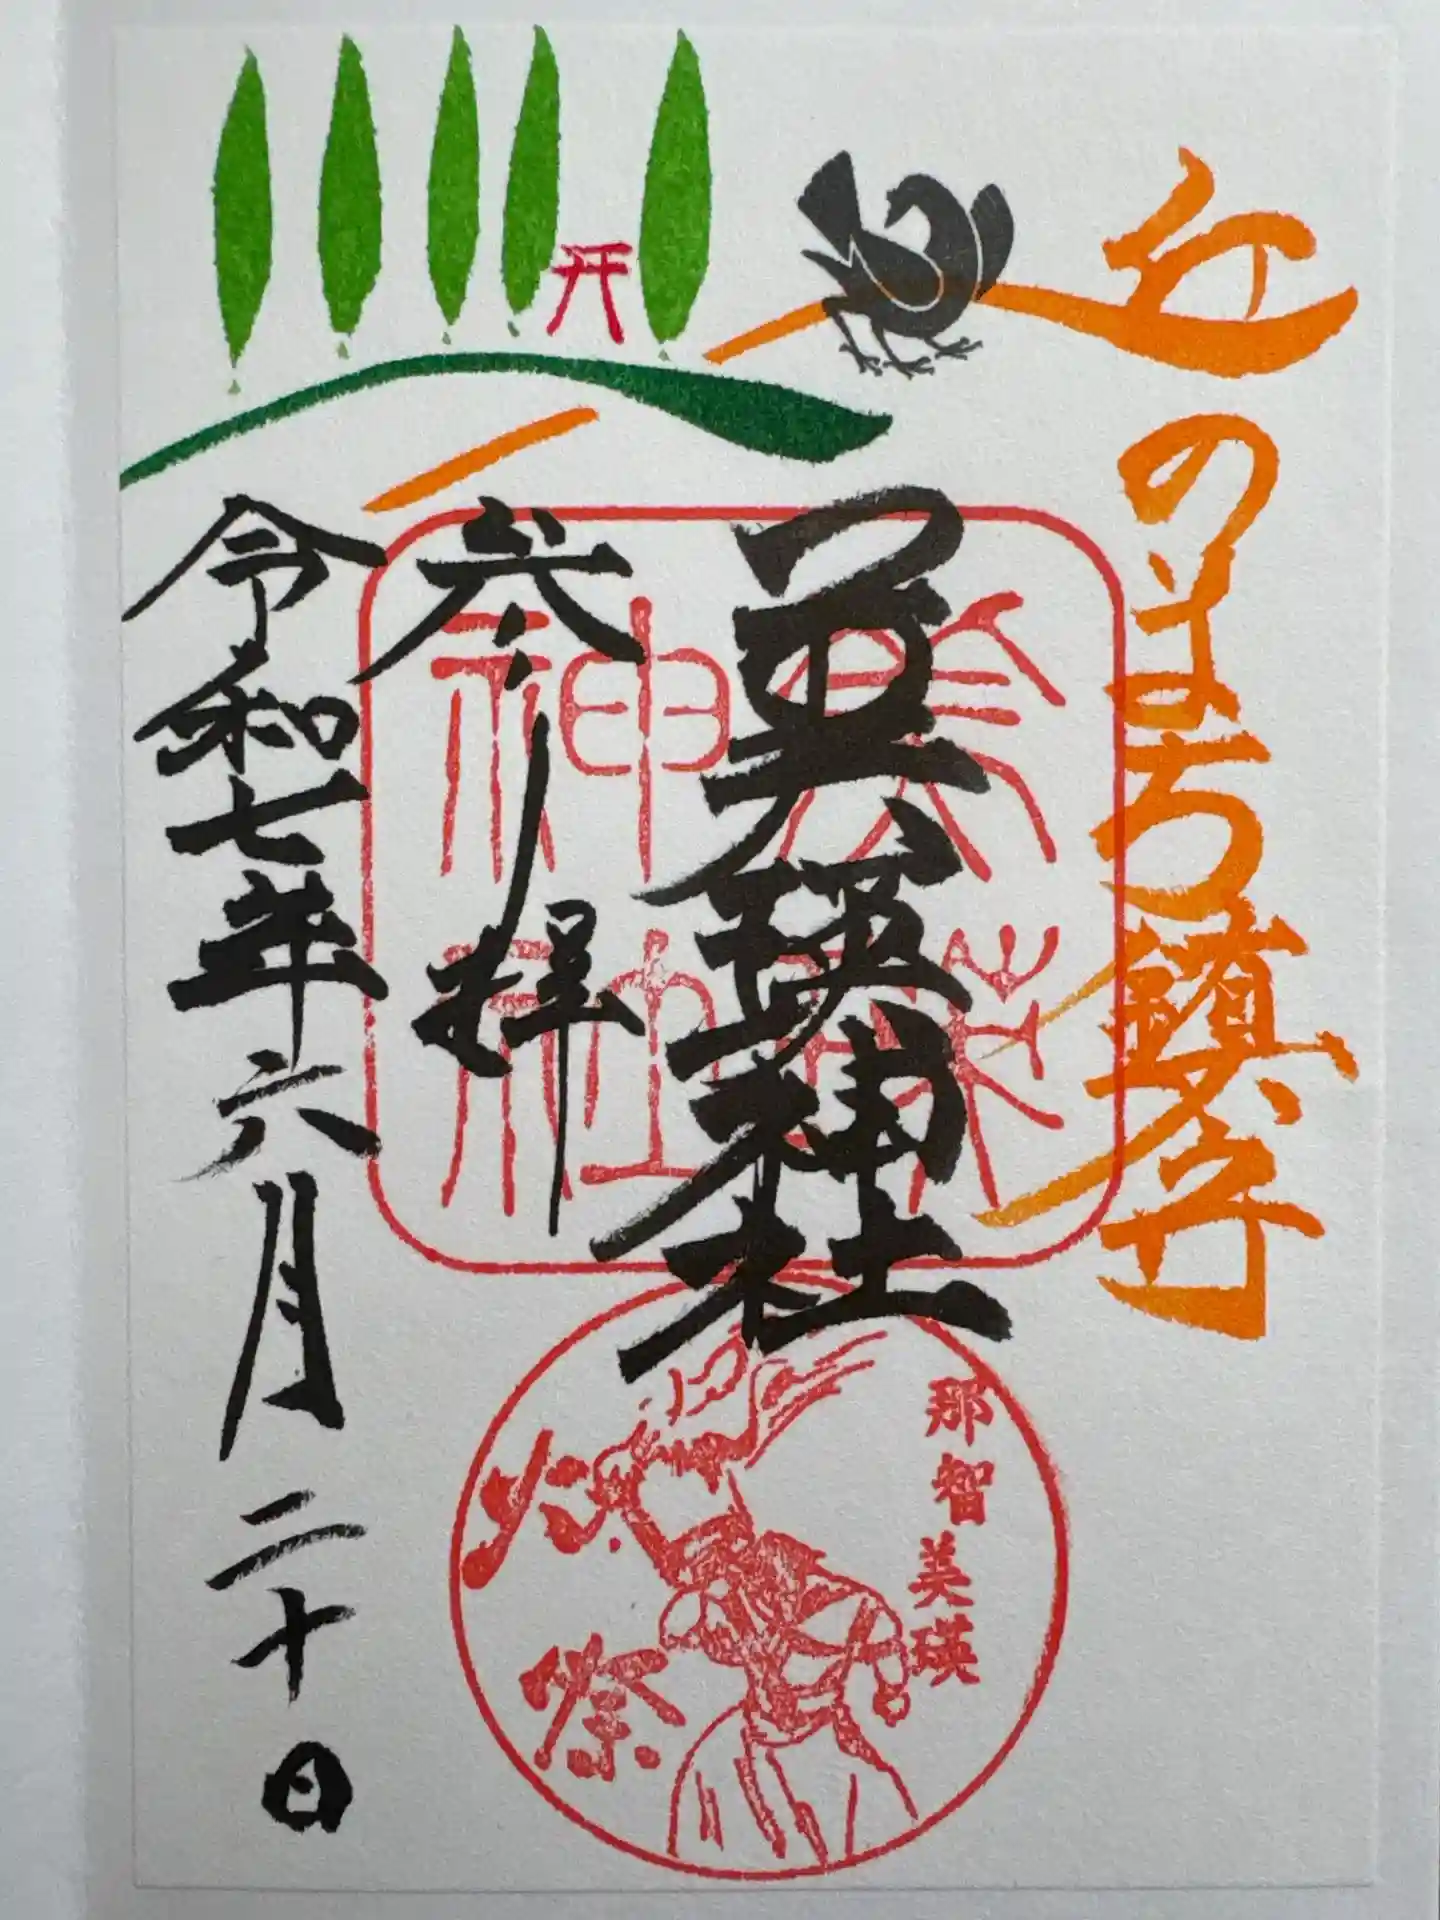 丘のまち鎮守
美瑛神社
奉拝
令和七年六月二十日
美瑛
神社
那智美瑛
火祭